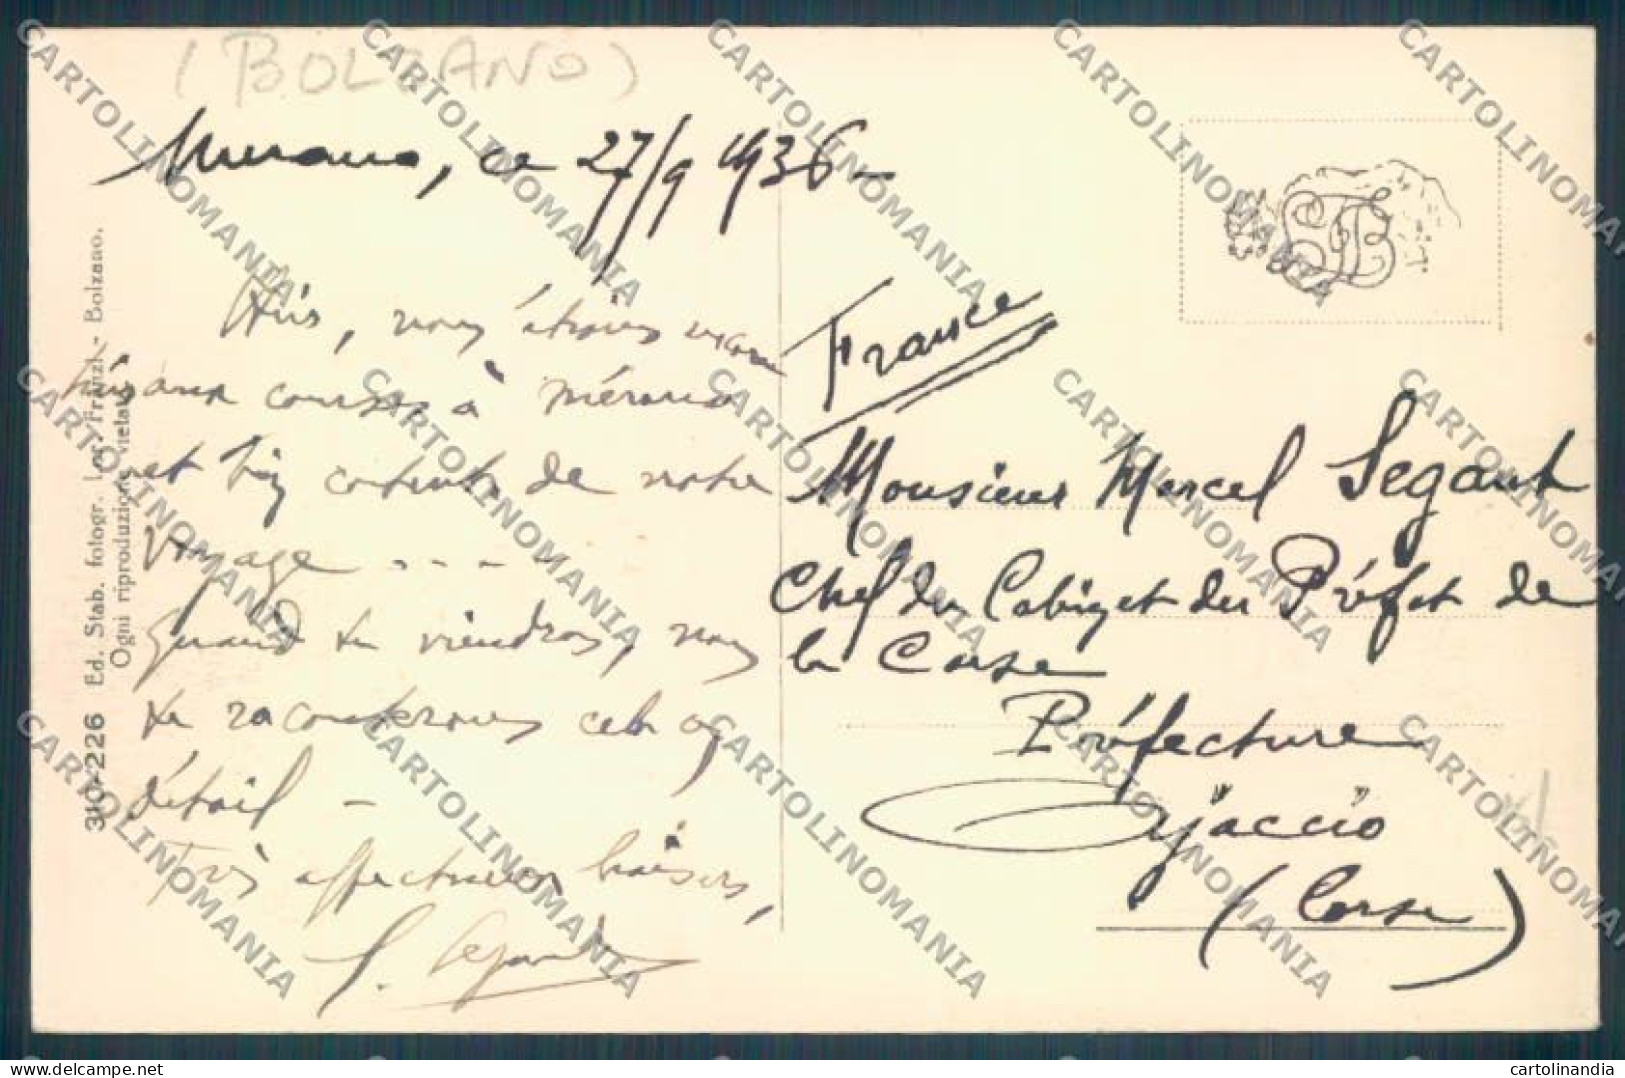 (BOLZANO)
Merano, ce 27/9 1936 -
nous étions
courses, à Mérano
et contents de notre
voyage - - - -
Quand tu viendras, nous
te raconterons cela en
détail -
Très affectueux baisers,
France
Monsieur Marcel Segant
Chef du Cabinet du Préfet de
la Corse
Préfecture
Ajaccio
(Corse)
310-226 Ed. Stab. fotogr. Lor. Fränzl. - Bolzano.
Ogni riproduzione vietata.
CARTOLINOMANIA
cartolinandia